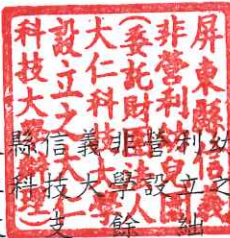 屏東縣信義
非營利幼兒園
(委託財團法人
大仁科技大學
設立之大仁
科技大學辦理)
縣信義非營利幼
科技大學設立之
支 餘 絀